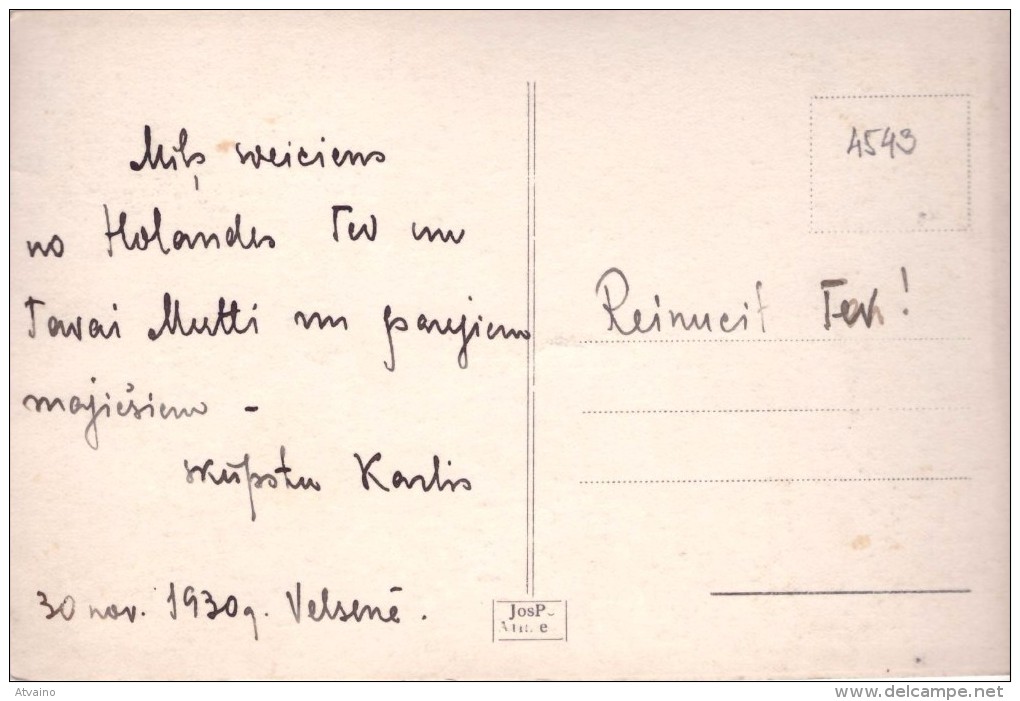 Mīļš sveiciens
no Holandes Tev un
Tavai Mutti un parejiem
majiēšiem -
skūpstu Karlis
30 nov. 1930g. Velsenē.
4543
Reinucit Tev!
JosP
Atvaino
www.delcampe.net